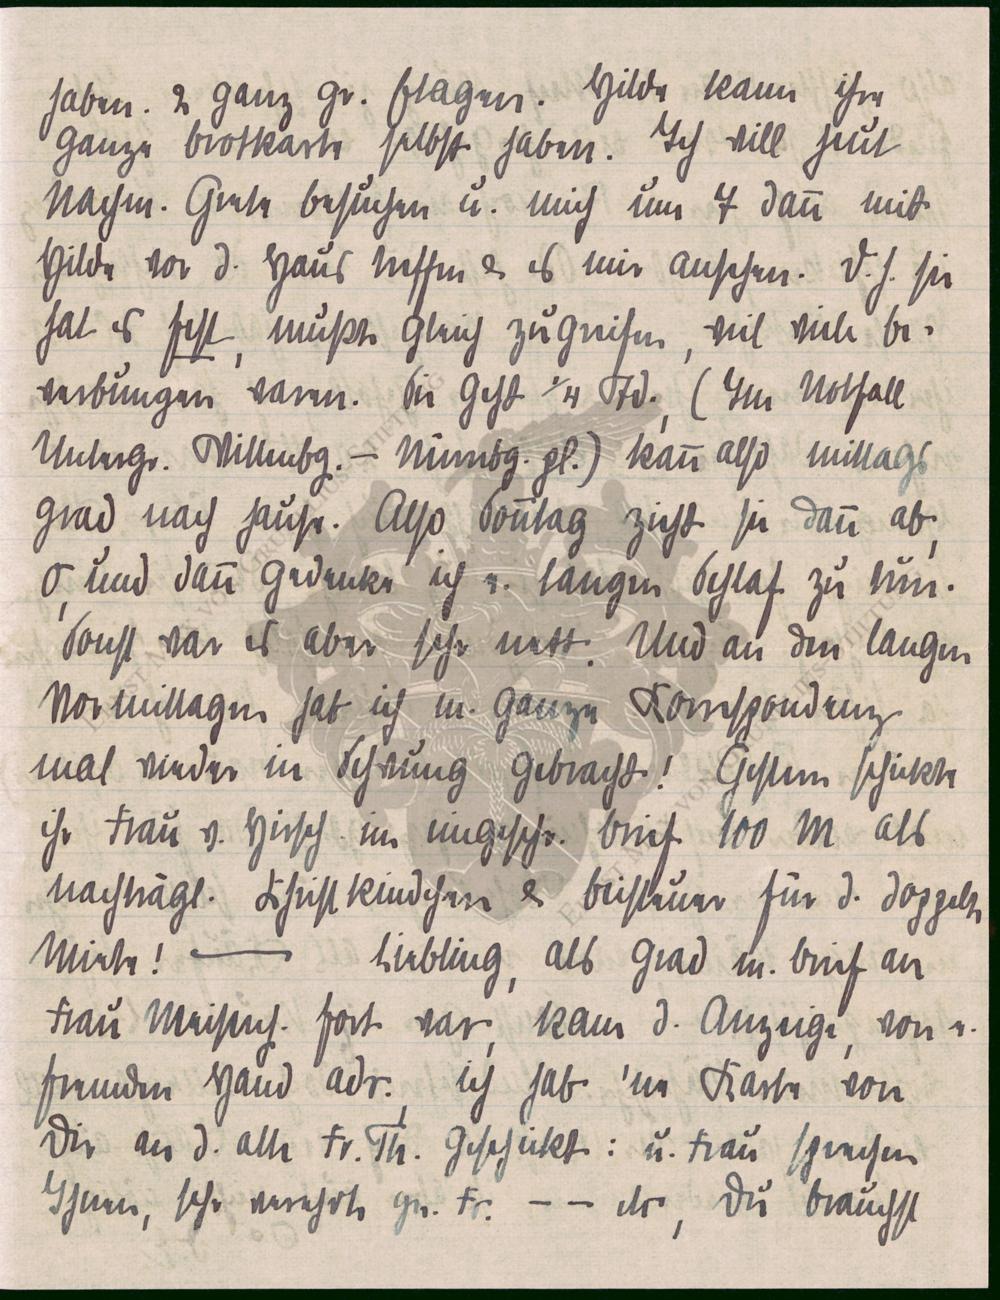 haben. 2 ganz gr. Etagen. Hilde kann ihre
ganze Brotkarte selbst haben. Ich will heut
Nachm. Grete besuchen u. mich um 7 dann mit
Hilde vor d. Haus treffen & es mir ansehen. D.h. sie
hat es fest, mußte gleich zugreifen, weil viele Be-
werbungen waren. Sie geht 1/4 Std., (Im Notfall
Untergr. Wittenbg. – Nürnbg. pl.) kañ also mittags
grad nach hause. Also Soñtag zieht sie dañ ab,
O, und dañ gedenke ich e. langen Schlaf zu tun.
Sonst war es aber sehr nett. Und an den langen
Vormittagen hab ich m. ganze Korrespondenz
mal wieder in Schwung gebracht! Gestern schickte
ihr Frau v. Hirsch im eingeschr. Brief 100 M als
nachträgl. Christkindchen & Beisteuer für d. doppelte
Miete! — Liebling, als grad m. Brief an
Frau fort war, kam d. Anzeige, von e.
fremden Hand adr., ich hab 'ne Karte von
Dir an d. alte Fr. Th. geschickt: u. Frau sprechen
Ihnen, sehr verehrte gn. Fr. – – etc, Du brauchst